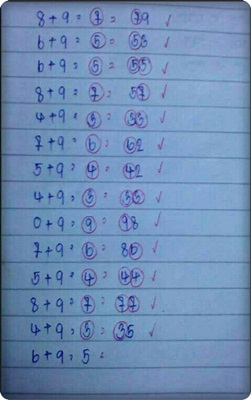 8+9=7=79 ✓
6+9=5=53 ✓
6+9=5=55 ✓
8+9=7=57 ✓
4+9=3=33 ✓
7+9=6=62 ✓
5+9=4=42 ✓
4+9=3=35 ✓
0+9=9=98 ✓
7+9=6=86 ✓
5+9=4=44 ✓
8+9=7=77 ✓
4+9=3=35 ✓
6+9=5=